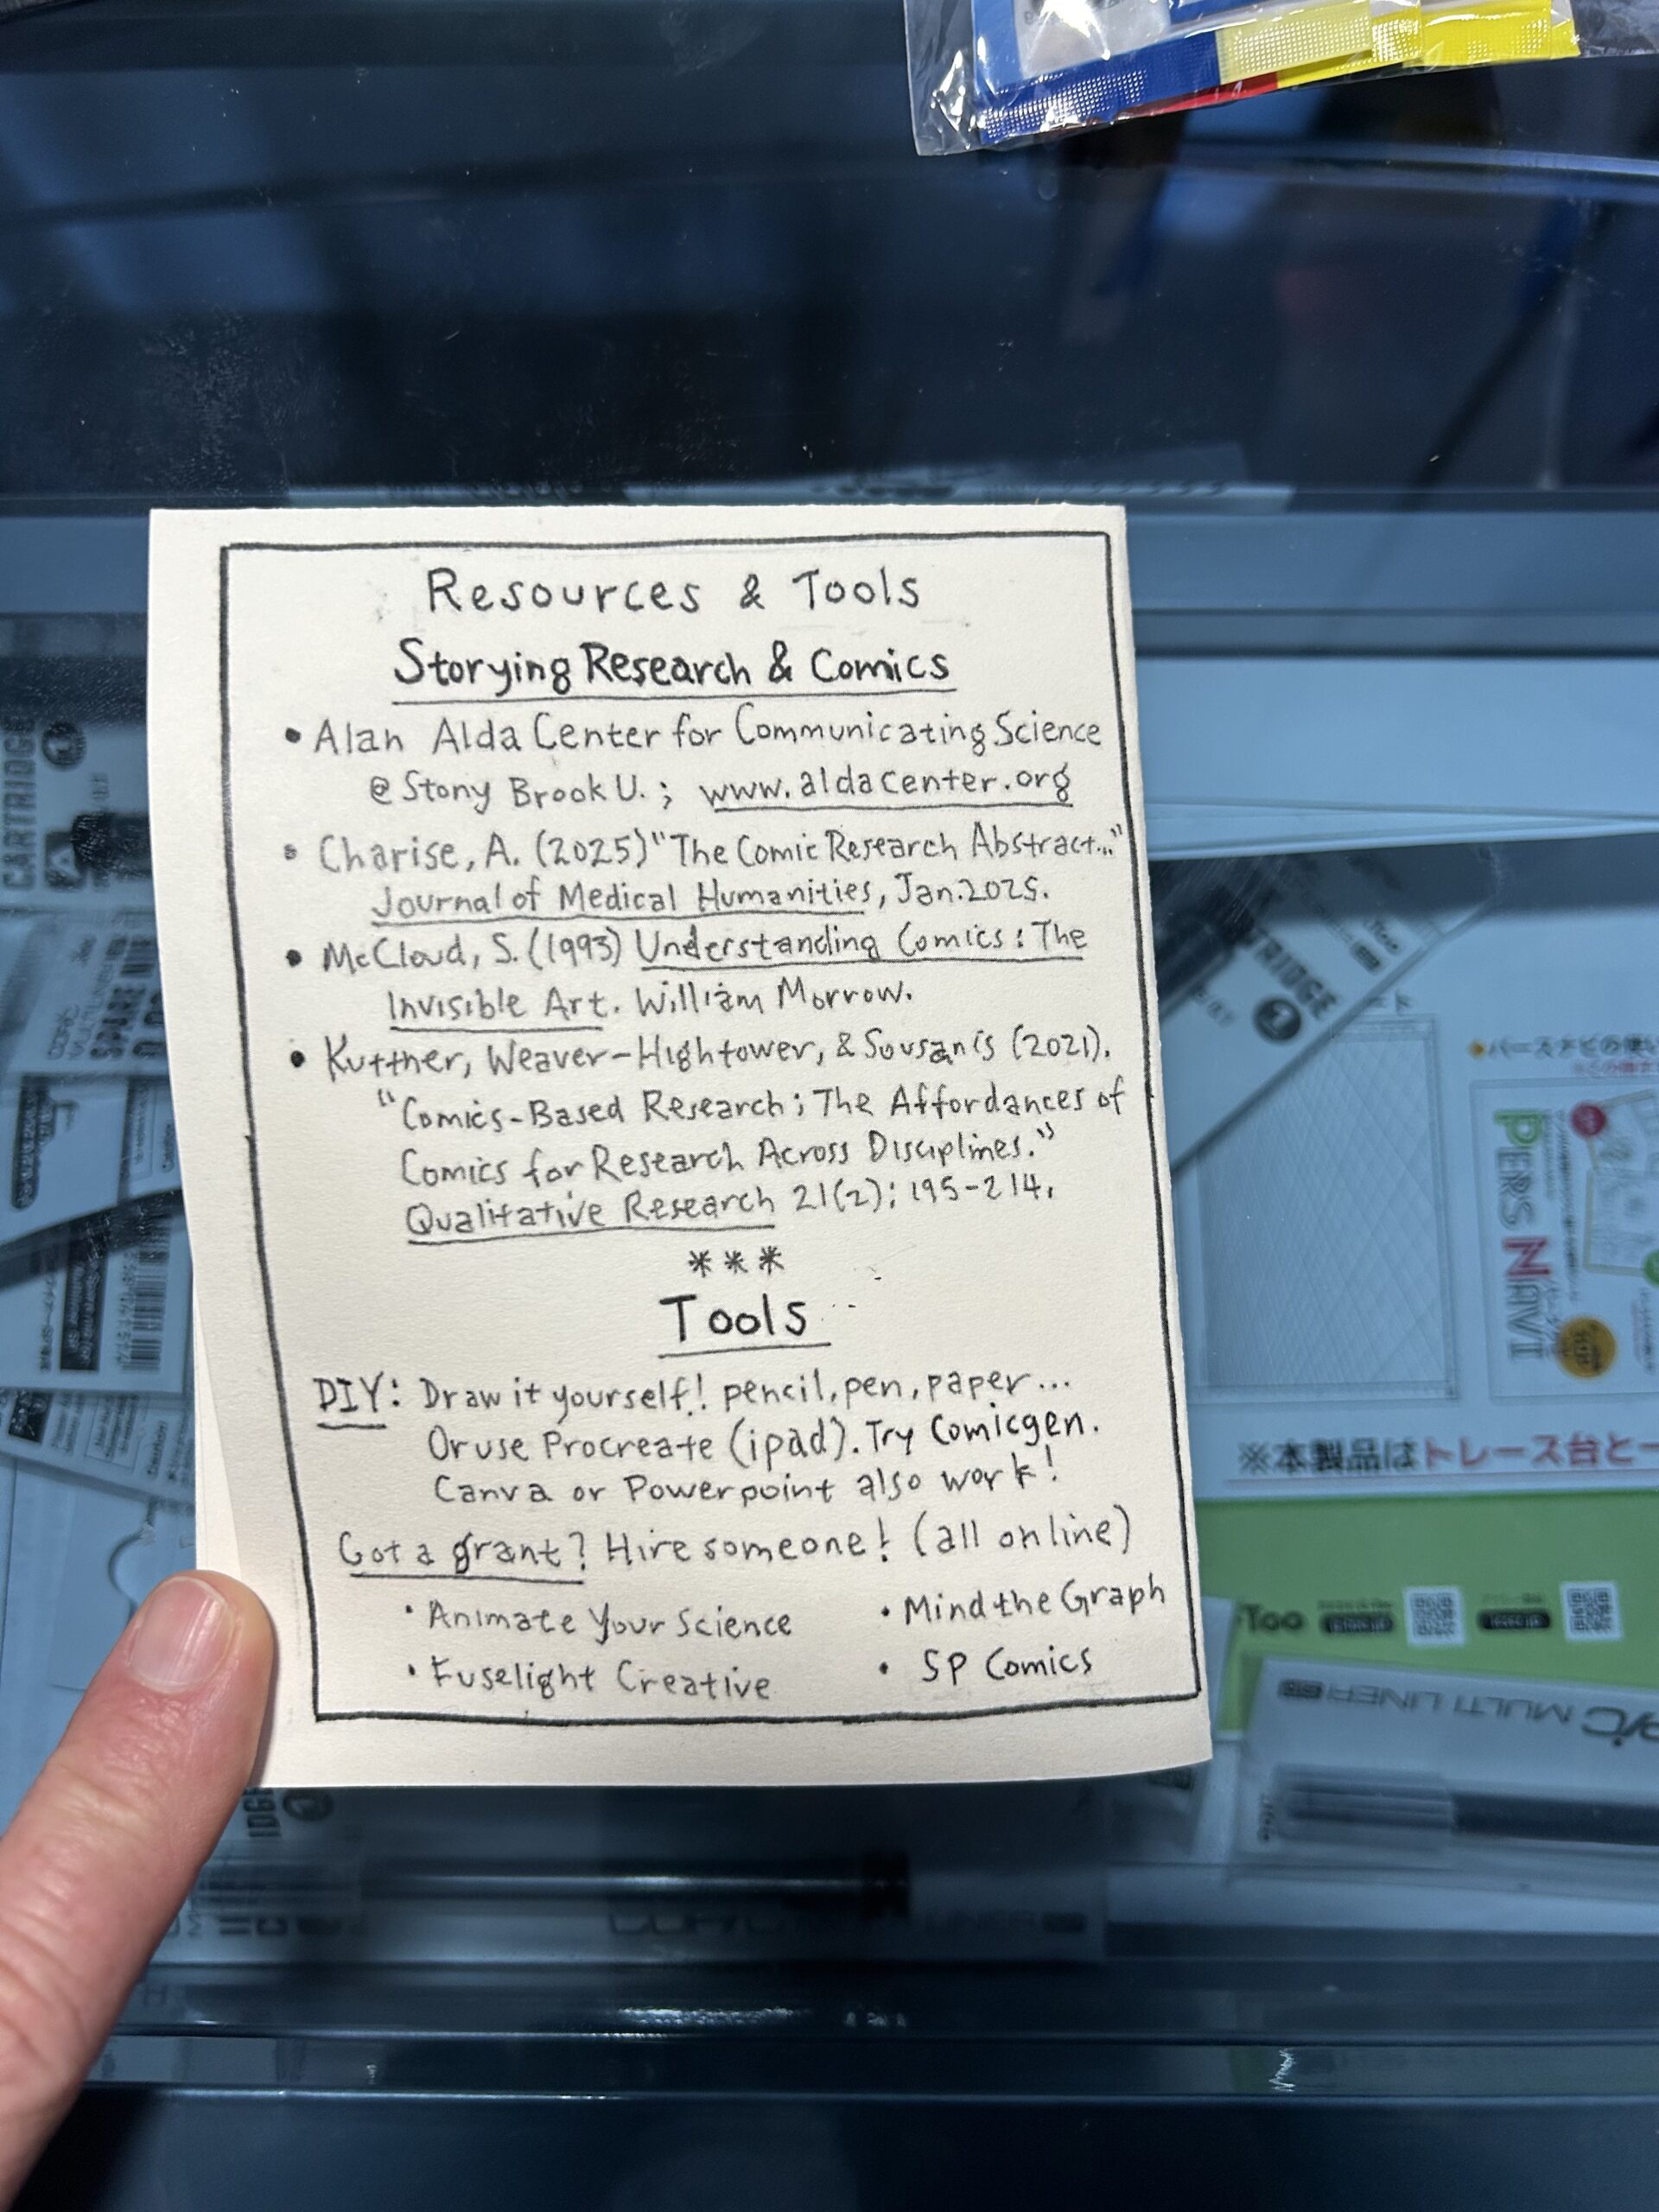 Resources & Tools
Storying Research & Comics
• Alan Alda Center for Communicating Science
@ Stony Brook U. ; www.aldacenter.org
• Charise, A. (2025) "The Comic Research Abstract..."
Journal of Medical Humanities, Jan. 2025.
• McCloud, S. (1993) Understanding Comics: The
Invisible Art. William Morrow.
• Kuttner, Weaver-Hightower, & Sousanis (2021).
"Comics-Based Research: The Affordances of
Comics for Research Across Disciplines."
Qualitative Research 21(2): 195-214.
***
Tools
DIY: Draw it yourself! pencil, pen, paper...
Or use Procreate (ipad). Try Comicgen.
Canva or Powerpoint also work!
Got a grant? Hire someone! (all online)
• Animate Your Science
• Mind the Graph
• Fuselight Creative
• SP Comics
CARTRIDGE
SPARE
TRIDGE
PERS NAVI
※本製品はトレース台と一
Too
MULTI LINER